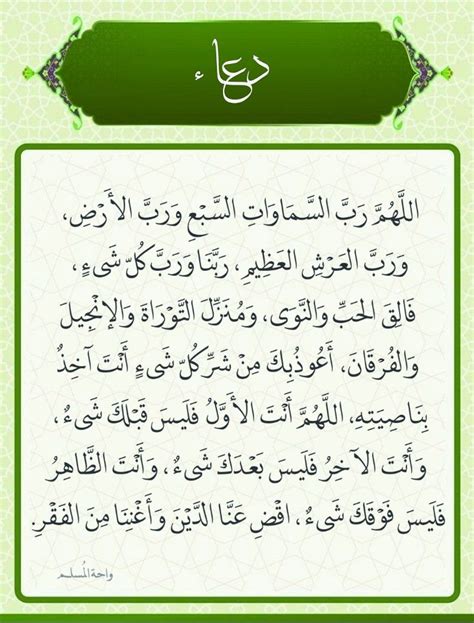 دعاء
اللَّهُمَّ رَبَّ السَّمَاوَاتِ السَّبْعِ وَرَبَّ الأَرْضِ،
وَرَبَّ العَرْشِ العَظِيمِ، رَبَّنَا وَرَبَّ كُلِّ شَىءٍ،
فَالِقَ الحَبِّ وَالنَّوَى، وَمُنَزِّلَ التَّوْرَاةِ وَالإِنْجِيلِ
وَالفُرْقَانِ، أَعُوذُ بِكَ مِنْ شَرِّ كُلِّ شَىءٍ أَنْتَ آخِذٌ
بِنَاصِيَتِهِ، اللَّهُمَّ أَنْتَ الأَوَّلُ فَلَيسَ قَبْلَكَ شَىءٌ،
وَأَنْتَ الآخِرُ فَلَيسَ بَعْدَكَ شَىءٌ، وَأَنْتَ الظَّاهِرُ
فَلَيسَ فَوْقَكَ شَىءٌ، اقْضِ عَنَّا الدَّيْنَ وَأَغْنِنَا مِنَ الفَقْرِ.
واحة المُسلم